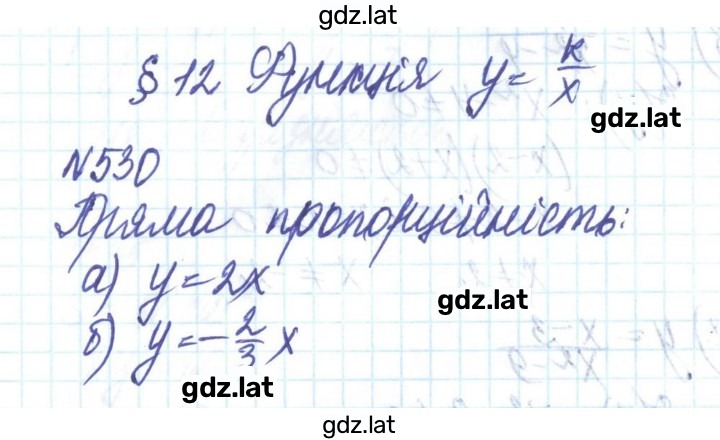 gdz.lat
§ 12 Функція y = k/x
gdz.lat
№530
Пряма пропорційність:
а) y = 2x
gdz.lat
б) y = -2/3 x
gdz.lat
gdz.lat